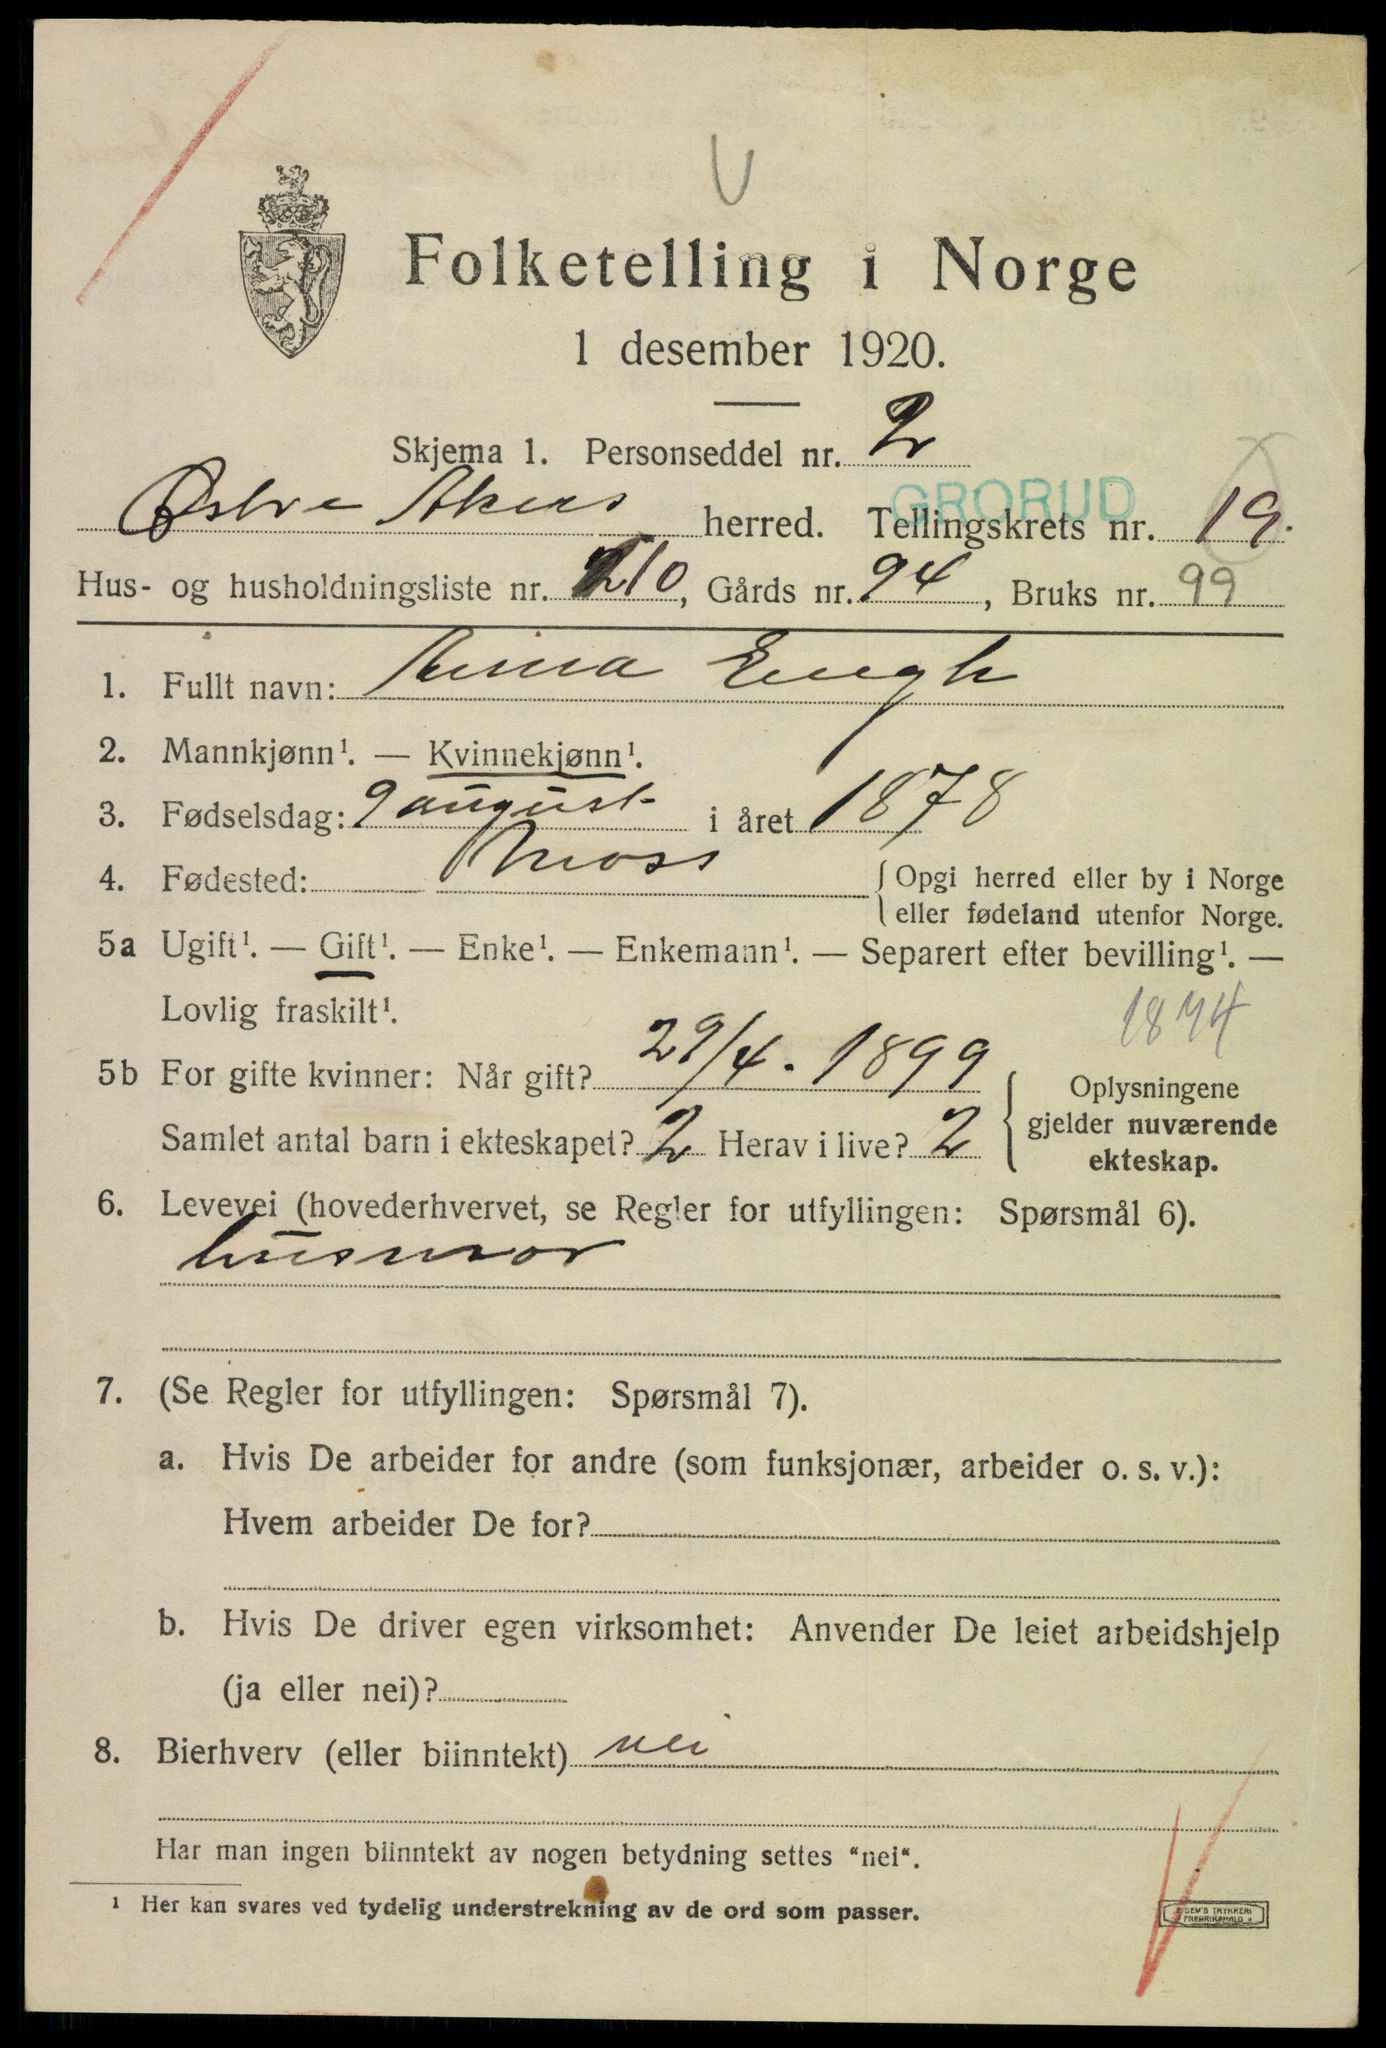 U
Folketelling i Norge
1 desember 1920.
Skjema 1. Personseddel nr. 2
GRORUD
Østre Akers herred. Tellingskrets nr. 19.
Hus- og husholdningsliste nr. 210, Gårds nr. 94, Bruks nr. 99
1. Fullt navn: Anna Engh
2. Mannkjønn¹. — Kvinnekjønn¹.
3. Fødselsdag: 9 august i året 1878
4. Fødested: Moss { Opgi herred eller by i Norge
eller fødeland utenfor Norge.
5a Ugift¹. — Gift¹. — Enke¹. — Enkemann¹. — Separert efter bevilling¹. —
Lovlig fraskilt¹.
5b For gifte kvinner: Når gift? 29/4. 1899
Samlet antal barn i ekteskapet? 2 Herav i live? 2
{ Oplysningene
gjelder nuværende
ekteskap.
6. Levevei (hovederhvervet, se Regler for utfyllingen: Spørsmål 6).
husmor
7. (Se Regler for utfyllingen: Spørsmål 7).
a. Hvis De arbeider for andre (som funksjonær, arbeider o. s. v.):
Hvem arbeider De for?
b. Hvis De driver egen virksomhet: Anvender De leiet arbeidshjelp
(ja eller nei)?
8. Bierhverv (eller biinntekt) nei
Har man ingen biinntekt av nogen betydning settes "nei".
¹ Her kan svares ved tydelig understrekning av de ord som passer.
TRYKKERI
FREDRIKSHALD